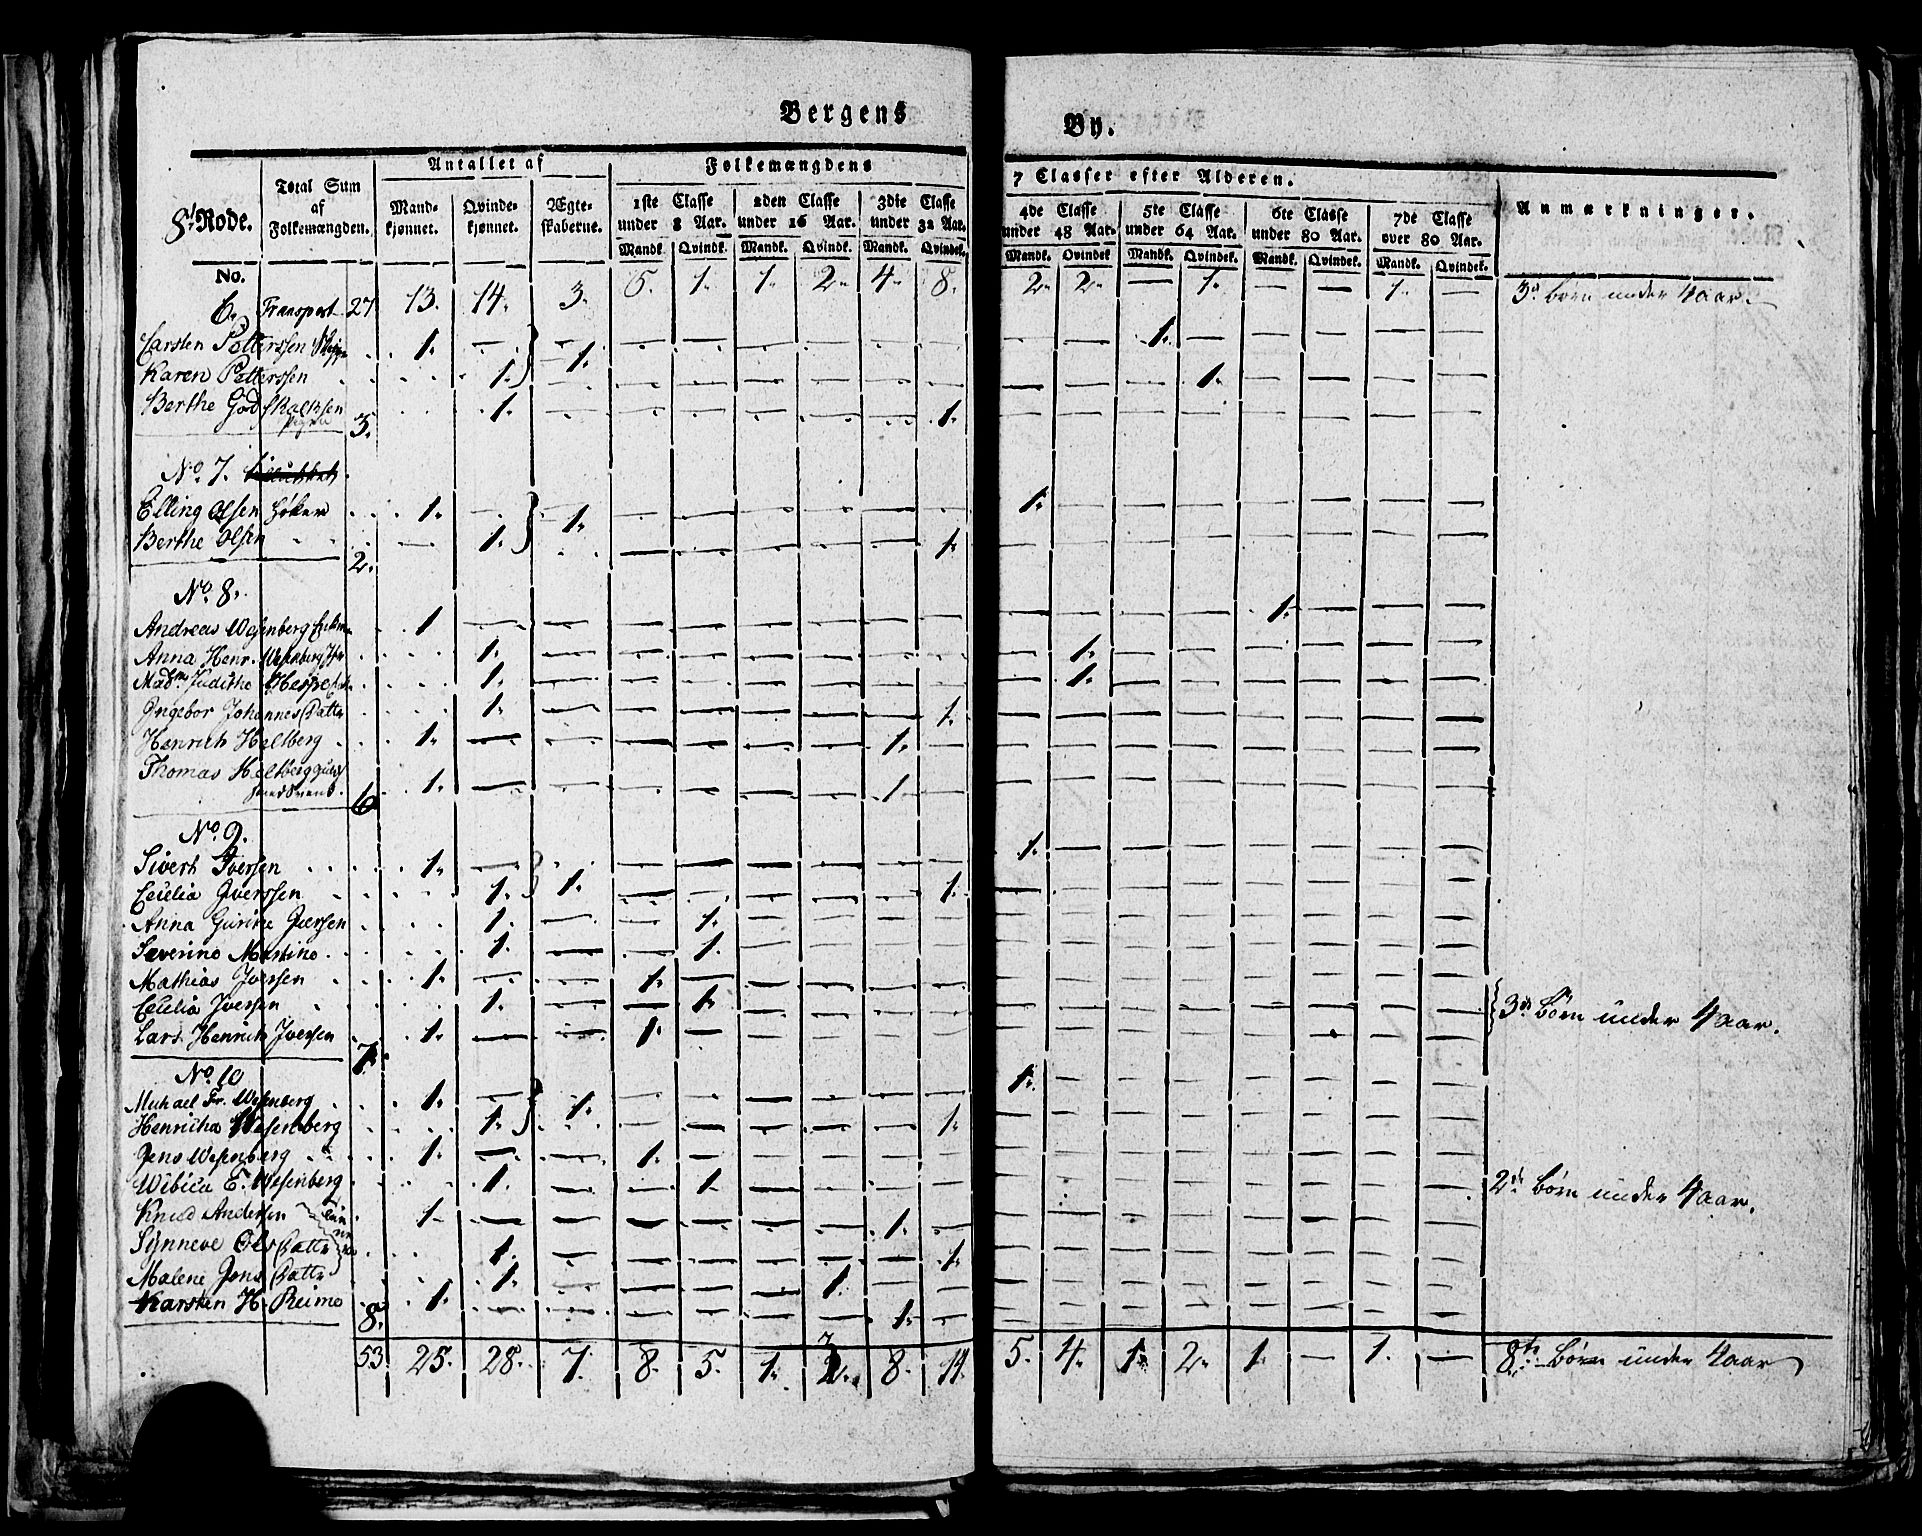 Bergens By.
8d Rode. Total Sum af Folkemængden. Antallet af Mandkjønnet. Qvindekjønnet. Ægteskaberne. Folkemængdens 7 Classer efter Alderen. Anmærkninger.
1ste Classe under 8 Aar. 2den Classe under 16 Aar. 3die Classe under 32 Aar. 4de Classe under 48 Aar. 5te Classe under 64 Aar. 6te Classe under 80 Aar. 7de Classe over 80 Aar.
Mandk. Qvindk. Mandk. Qvindk. Mandk. Qvindek. Mandk. Qvindek Mandk. Qvindek. Mandk. Qvindek. Mandk. Qvindek.
No.
6. Transport 27 13. 14. 3. 5. 1. 1. 2. 4. 8. 2. 2. — 1. — — 1. — 3d børn under 4 aar
Carsten Petterssen 1. — 1. — — — — — — — — 1. — — — — —
Karen Petterssen 1. — — — — — — — — — 1. — — — —
Berthe Godskalksen 3. 1. — — — — — — 1. — — — — — — — —
No. 7.
Elling Olsen Høker 1. — 1. — — — — — — 1. — — — — — — —
Berthe Olsen 2. — 1. — — — — — 1. — — — — — — — —
No. 8.
Andreas Wesenberg 1 — — — — — — — — — — — — 1. — — —
Anna Henr. Wesenberg 1. — — — — — — — — 1. — — — — — —
Madme Judithe 1. — — — — — — — — 1. — — — — — —
Ingebor Johannes Datter 1. — — — — — — 1. — — — — — — — —
Henrich Helberg 1. — — — — — — 1. — — — — — — — — —
Thomas Helberg Guldsmedsvend. 6 1. — — — — — — 1. — — — — — — — — —
No. 9.
Sivert Iversen 1. — 1. — — — — — — 1. — — — — — — —
Cecilia Iverssen 1. — — — — — 1. — — — — — — — —
Anna Gurine Iversen 1. — — 1. — — — — — — — — — — — —
Severine Martine 1. — — 1. — — — — — — — — — — — —
Mathias Iversen 1. — — 1. — — — — — — — — — — — — —
Cecilia Iversen 1. — — 1. — — — — — — — — — — — — 3de børn under 4 aar.
Lars Henrich Iversen 7. 1. — — 1. — — — — — — — — — — — — —
No. 10
Michael Fr. Wesenberg 1. — 1. — — — — — — 1. — — — — — — —
Henricha Wesenberg 1. — — — — — 1. — — — — — — — —
Jens Wesenberg 1. — — 1. — — — — — — — — — — — — —
Wibica E. Wesenberg 1. — — 1. — — — — — — — — — — — — 2de børn under 4 aar.
Knud Andersen 1. — — — — — — 1. — — — — — — — — —
Synneve Ols Datter 1. — — — — — — 1. — — — — — — — —
Malene Jens Datter 1. — — — — 1. — — — — — — — — — —
Karsten H. Reimo 8. 1. — — — — — — 1. — — — — — — — — —
53 25. 28. 7. 8. 5. 1. 3. 8. 11. 5. 4. 1. 2. 1. — 1. — 8te børn under 4 aar